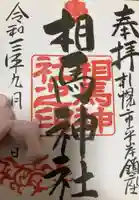 奉拝 札幌市平岸鎮座
相馬神社
相馬神
社之印
令和三年九月 日